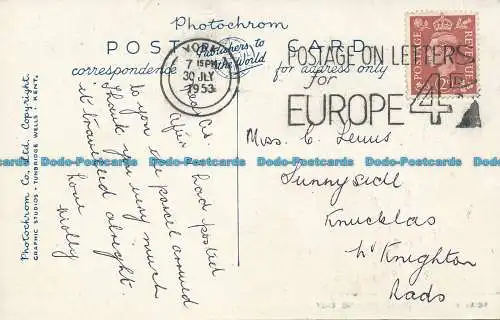 Photochrom
Publishers to
the World
POST CARD
correspondence
for address only
7 15PM
30 JLY
1953
POSTAGE ON LETTERS
for
EUROPE 4D
POSTAGE
REVENUE
Photochrom Co. Ltd., Copyright.
GRAPHIC STUDIOS · TUNBRIDGE WELLS · KENT.
Dear
After I had posted
to you the parcel arrived
Thank you very much
it travelled alright.
love
Molly
Miss C. Lewis
Sunnyside
Knucklas
Nr Knighton
Rads
Dodo-Postcards Dodo-Postcards Dodo-Postcards Dodo-Postcards Dodo-Postcards